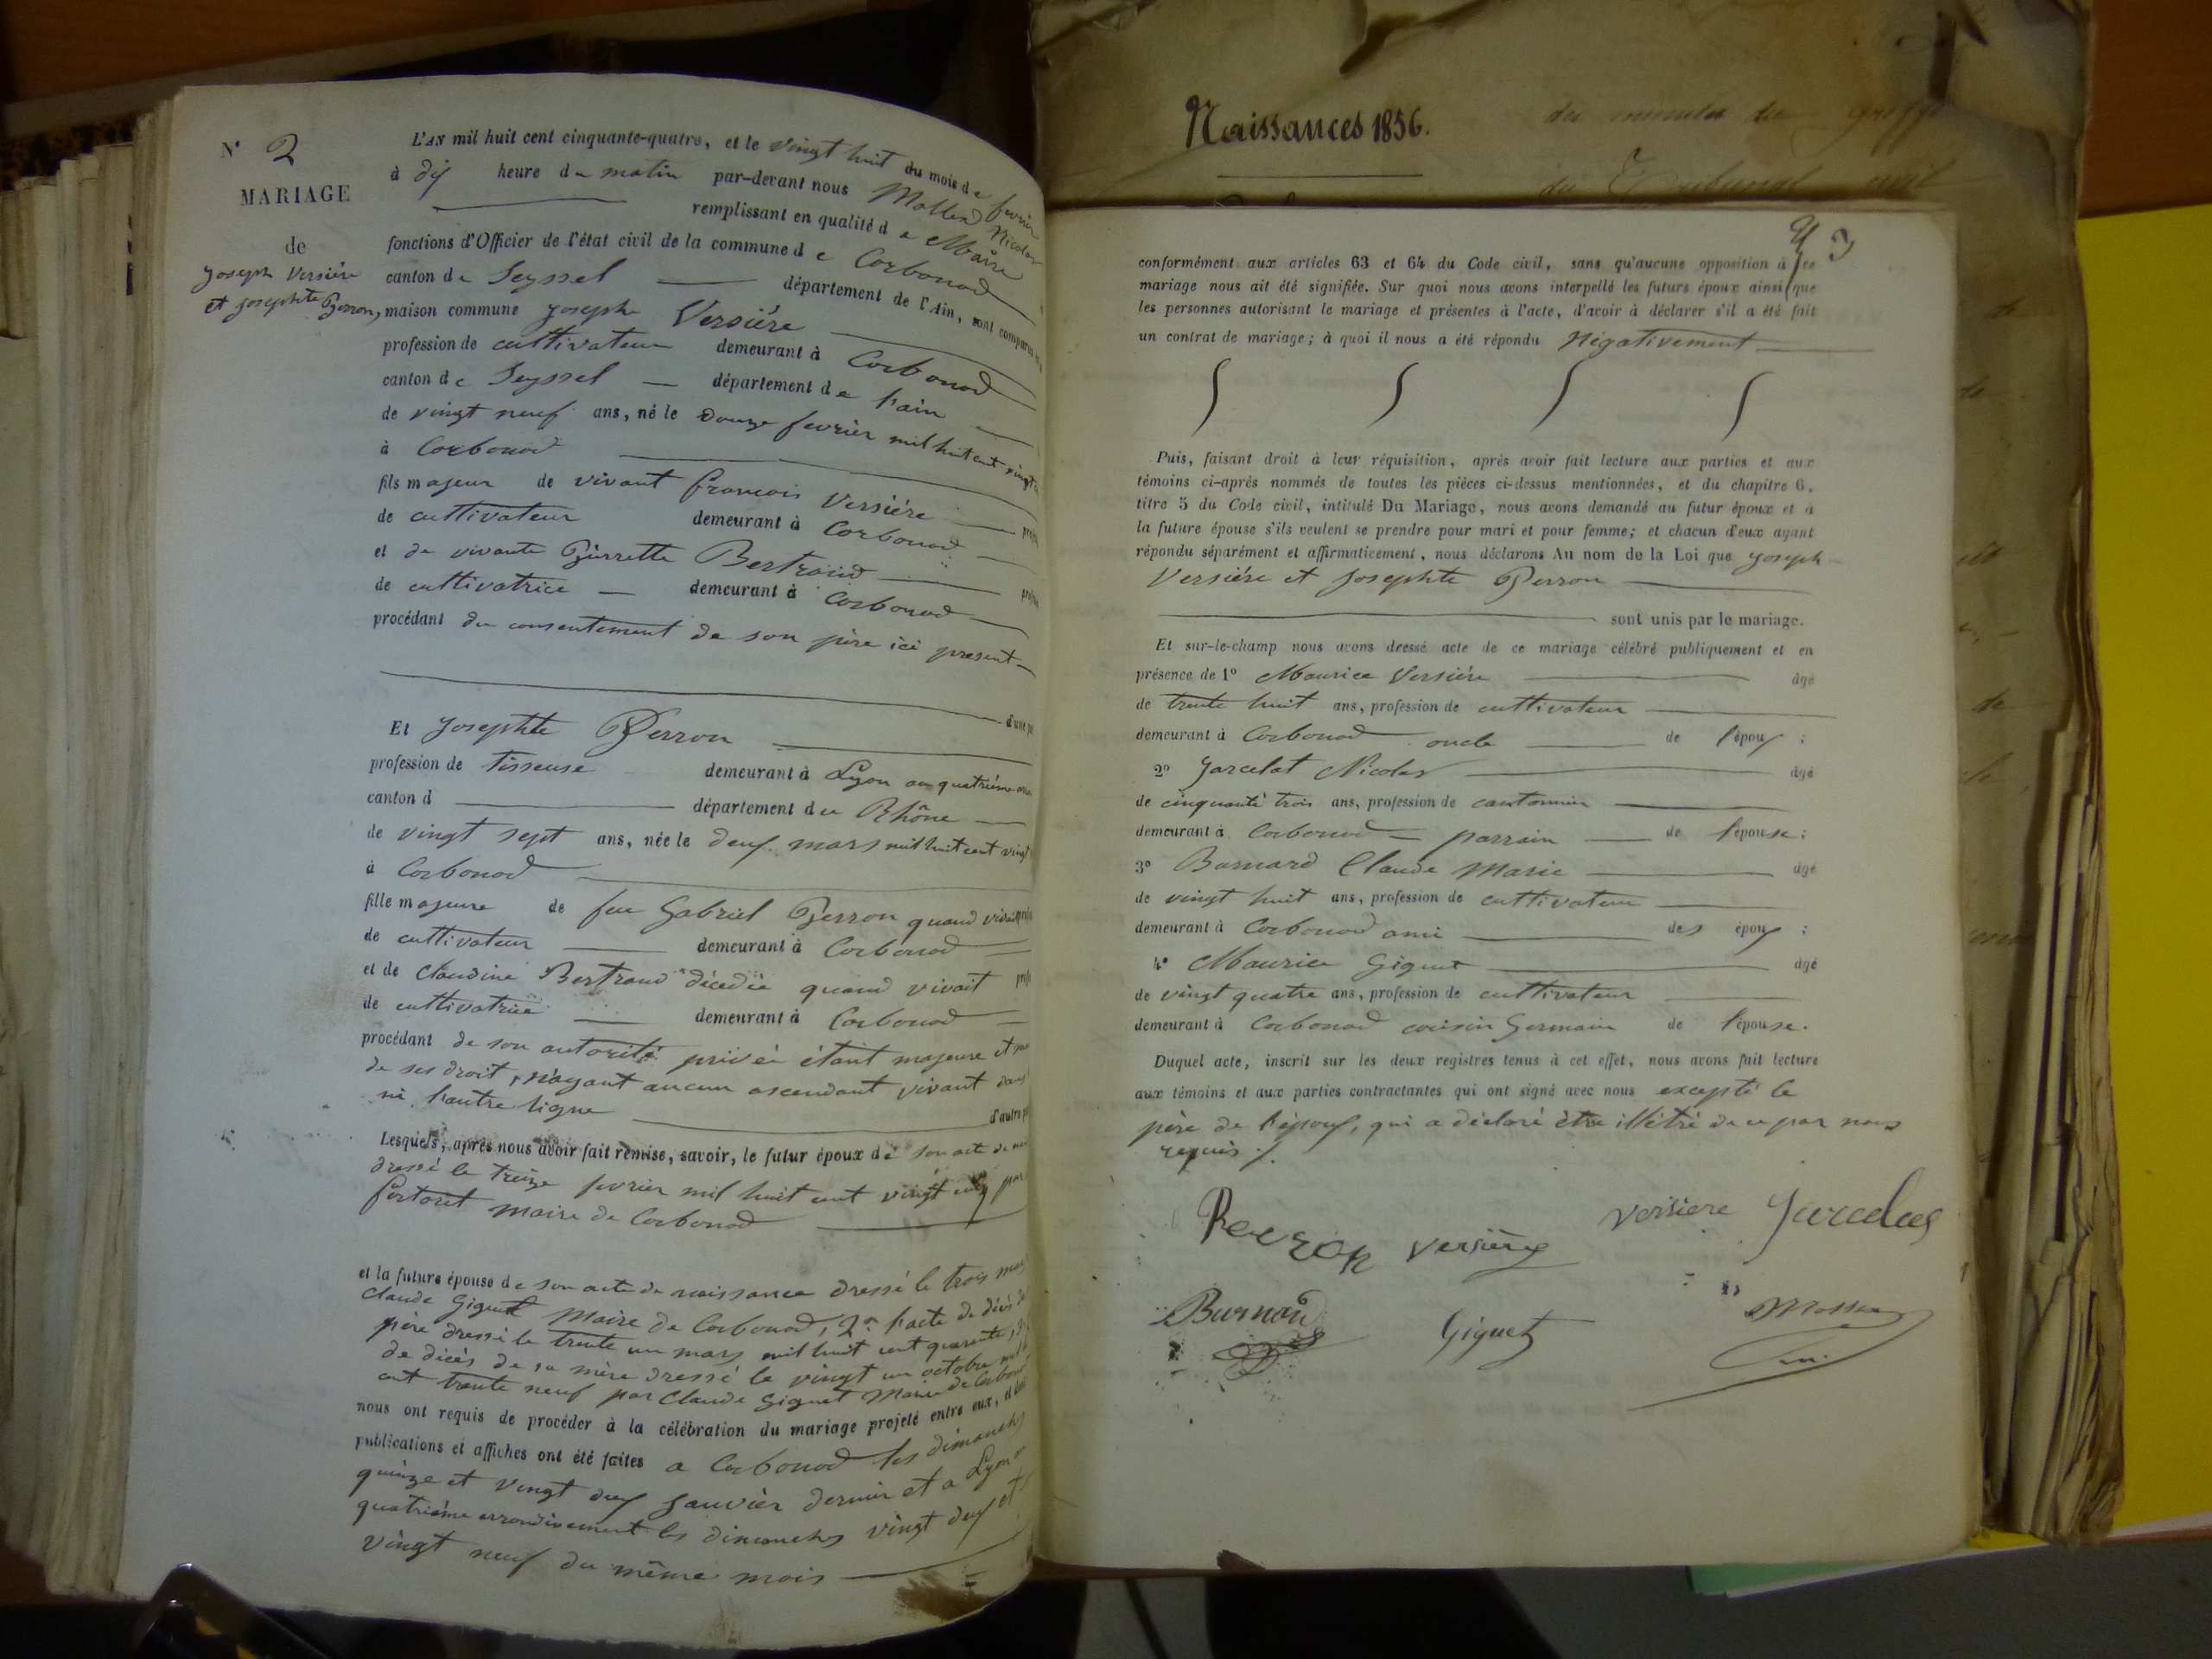 N° 2
MARIAGE
de
Joseph Versiére
et Josephte Perron,
L'AN mil huit cent cinquante-quatre, et le vingt huit du mois de fevrier
à dix heure du matin par-devant nous Mollex Nicolas
remplissant en qualité de Maire
fonctions d'Officier de l'état civil de la commune de Corbonod
canton de Seyssel département de l'Ain, sont comparus
maison commune Joseph Versiére
profession de cultivateur demeurant à Corbonod
canton de Seyssel département de l'ain
de vingt neuf ans, né le douze fevrier mil huit cent vingt
à Corbonod
fils majeur de vivant francois Versiére
de cultivateur demeurant à Corbonod
et de vivante Pierrette Bertrand
de cultivatrice demeurant à Corbonod
procédant du consentement de son père ici present
d'une
Et Josephte Perron
profession de tisseuse demeurant à Lyon au quatrième
canton d département du Rhône
de vingt sept ans, née le deux mars mil huit cent vingt
à Corbonod
fille majeure de feu Gabriel Perron quand vivait
de cultivateur demeurant à Corbonod
et de Claudine Bertrand décedée quand vivait
de cultivatrice demeurant à Corbonod
procédant de son autorité privée étant majeure et
de ses droit, n'ayant aucun ascendant vivant dans
ni l'autre ligne d'autre
Lesquels, après nous avoir fait remise, savoir, le futur époux de son acte de
dressé le treize fevrier mil huit cent vingt cinq par
fortoret maire de Corbonod
et la future épouse de son acte de naissance dressé le trois mars
Claude Giguet Maire de Corbonod, 2° l'acte de décès de
père dressé le trente un mars mil huit cent quarante,
de décès de sa mère dressé le vingt un octobre mil
cent trente neuf par Claude Giguet Maire de Corbonod
nous ont requis de procéder à la célébration du mariage projeté entre eux,
publications et affiches ont été faites a Corbonod les dimanches
quinze et vingt deux janvier dernier et a Lyon
quatrième arrondissement les dimanches vingt deux et
vingt neuf du même mois
Naissances 1856.
des minutes du greffe
du Tribunal civil
3
conformément aux articles 63 et 64 du Code civil, sans qu'aucune opposition à ce
mariage nous ait été signifiée. Sur quoi nous avons interpellé les futurs époux ainsi que
les personnes autorisant le mariage et présentes à l'acte, d'avoir à déclarer s'il a été fait
un contrat de mariage; à quoi il nous a été répondu Négativement
Puis, faisant droit à leur réquisition, après avoir fait lecture aux parties et aux
témoins ci-après nommés de toutes les pièces ci-dessus mentionnées, et du chapitre 6,
titre 5 du Code civil, intitulé Du Mariage, nous avons demandé au futur époux et à
la future épouse s'ils veulent se prendre pour mari et pour femme; et chacun d'eux ayant
répondu séparément et affirmativement, nous déclarons Au nom de la Loi que Joseph
Versiére et Josephte Perron
sont unis par le mariage.
Et sur-le-champ nous avons dressé acte de ce mariage célébré publiquement et en
présence de 1° Maurice Versiére âgé
de trente huit ans, profession de cultivateur
demeurant à Corbonod oncle de l'époux ;
2° Jarcelat Nicolas âgé
de cinquante trois ans, profession de cantonnier
demeurant à Corbonod parrain de l'épouse ;
3° Burnard Claude Marie âgé
de vingt huit ans, profession de cultivateur
demeurant à Corbonod ami des époux ;
4° Maurice Giguet âgé
de vingt quatre ans, profession de cultivateur
demeurant à Corbonod cousin Germain de l'épouse.
Duquel acte, inscrit sur les deux registres tenus à cet effet, nous avons fait lecture
aux témoins et aux parties contractantes qui ont signé avec nous excepté le
père de l'époux, qui a déclaré être illétré de ce par nous
requis ./.
Perron versière versiere
Burnard Giguet Mollex